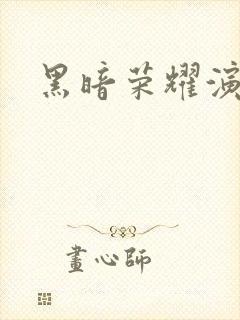 黑暗荣耀演
畫心師